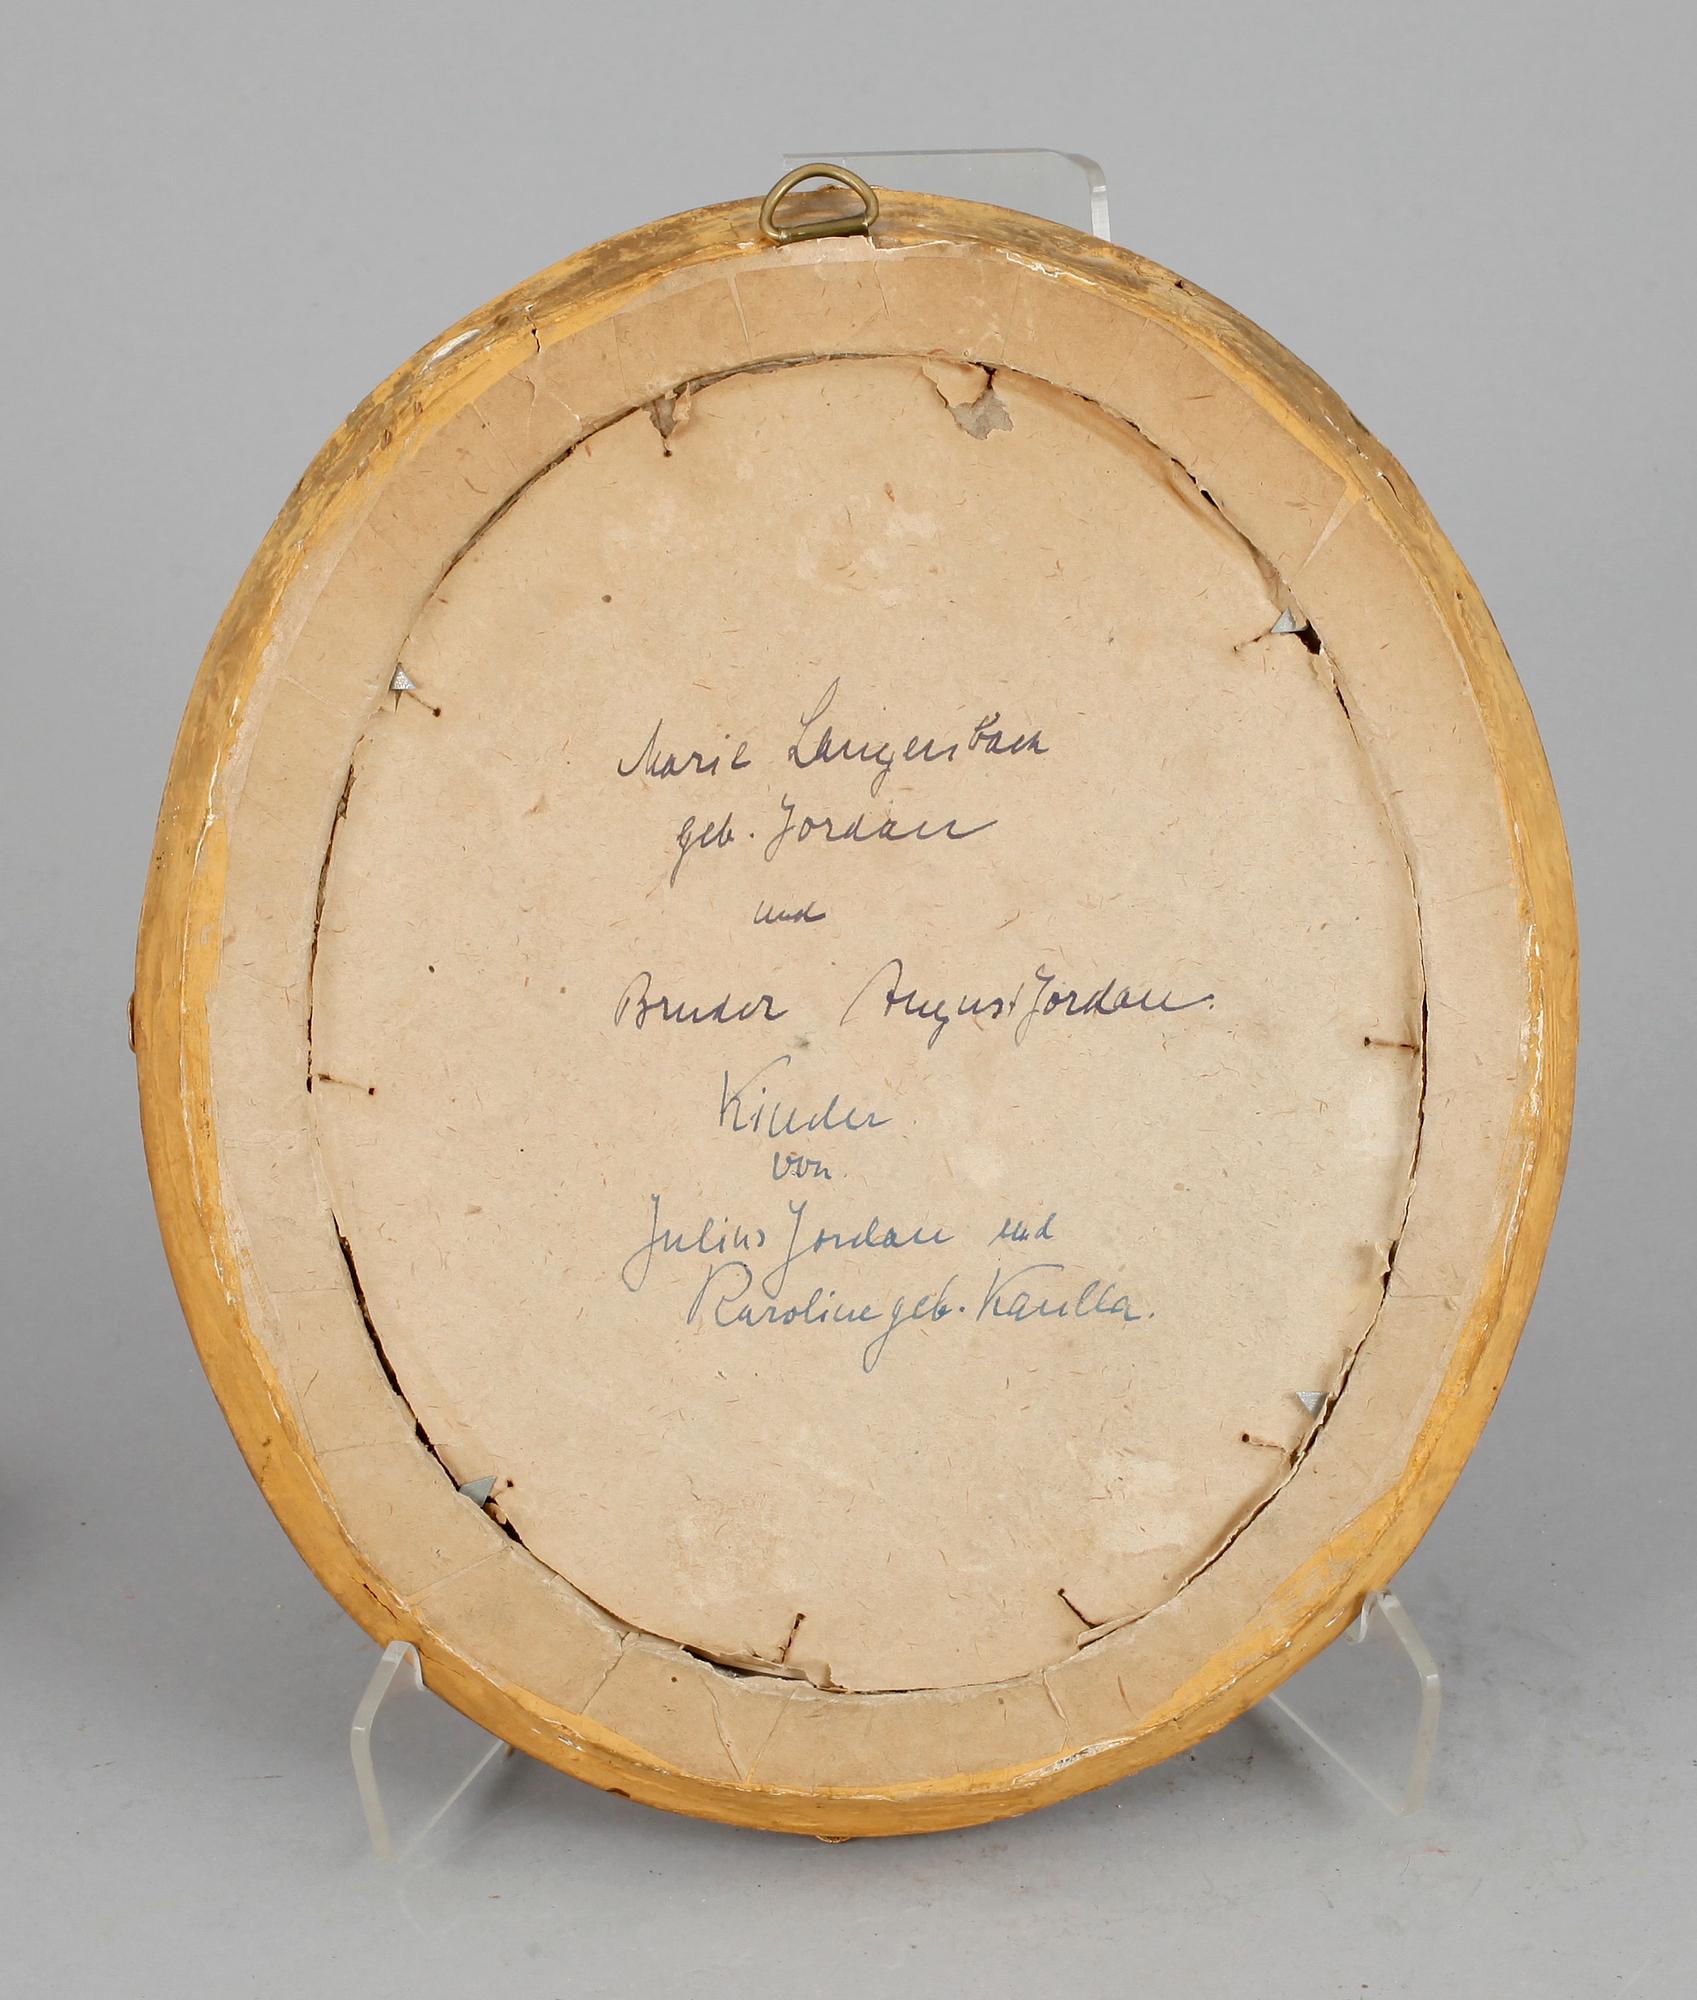 Marie Langenbach
geb. Jordan
und
Bruder August Jordan.
Kinder
von
Julius Jordan und
Karoline geb. Kaulla.